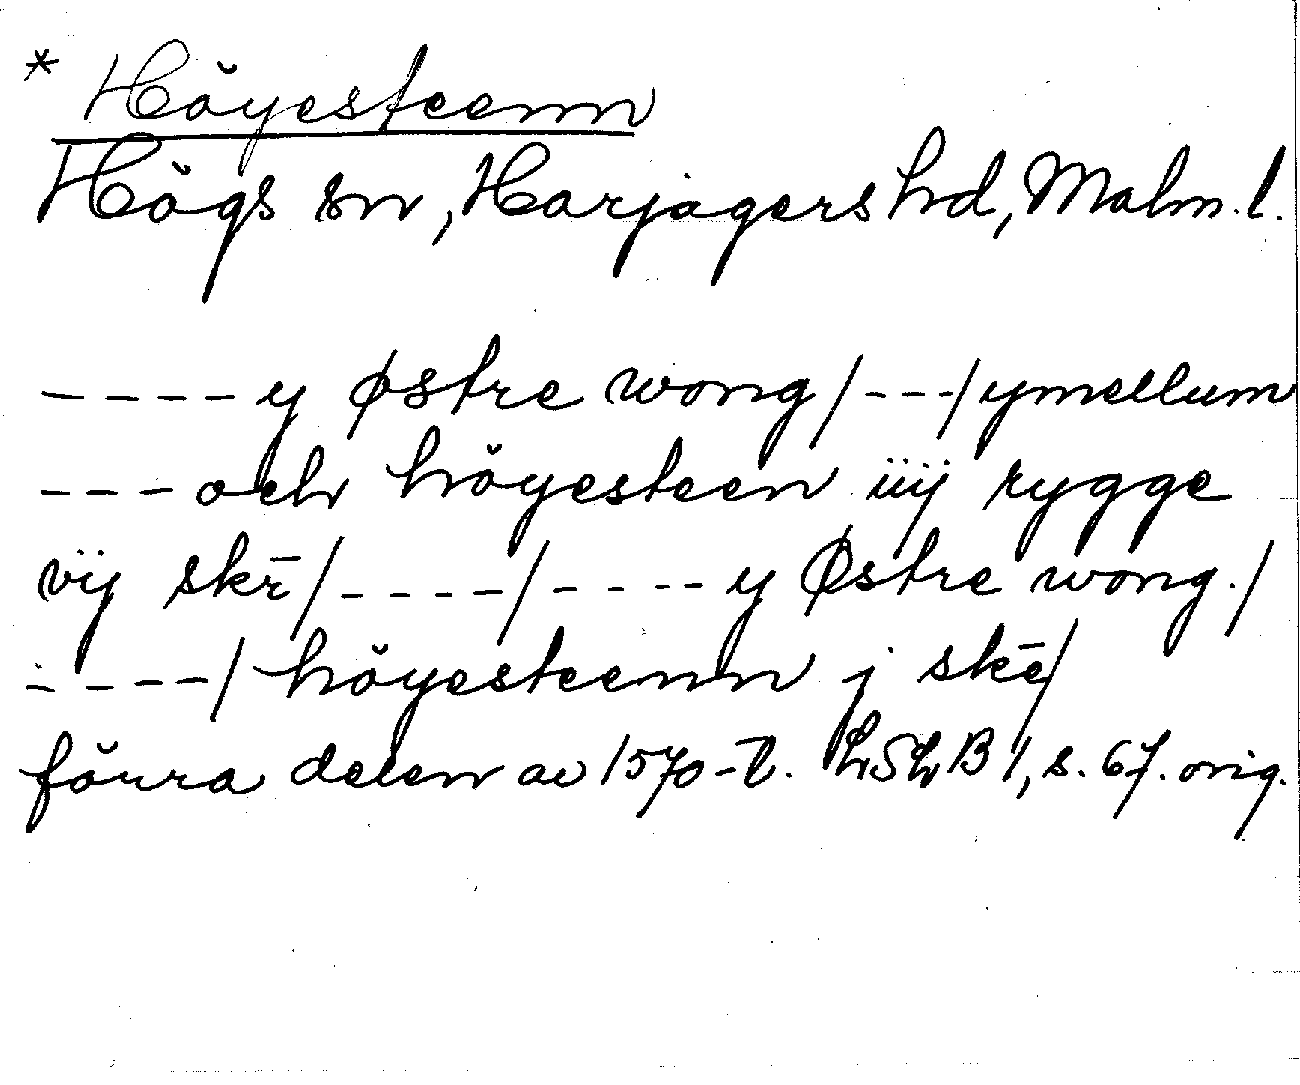 * Höyesteenn
Högs sn, Harjagers hd, Malm. l.
– – – – y østre wong / – – – / ymellum
– – – och höyesteen iiij rygge
vij skr̄ / – – – – / – – – – y Østre wong. /
– – – – / höyesteenn j skē /
förra delen av 1570-t. LSLB 1, s. 67. orig.